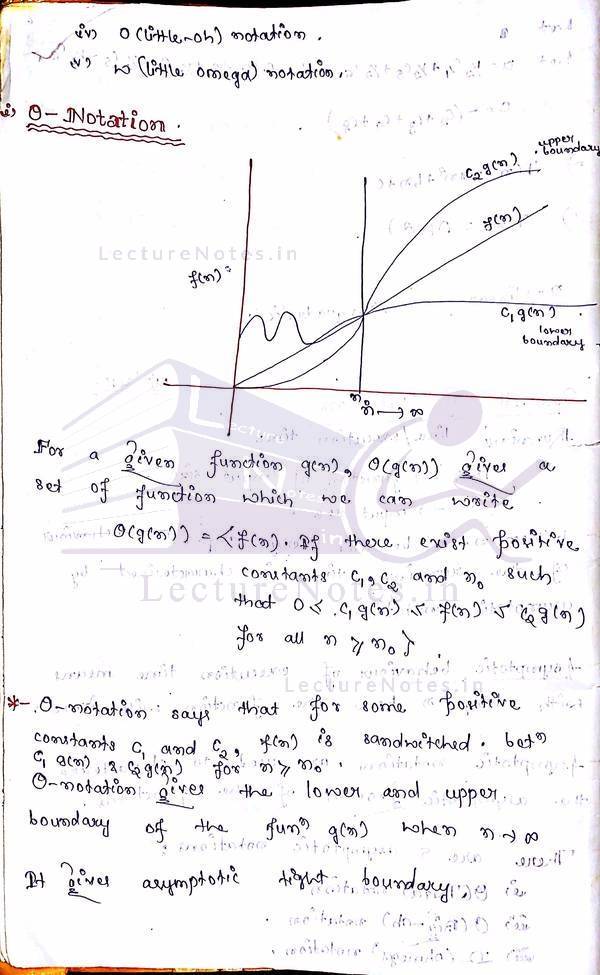 iv) o (little-oh) notation.
v) w (little omega) notation.
i) θ- Notation.
upper boundary
c2 g(n)
f(n)
LectureNotes.in
f(n) =
c1 g(n)
lower boundary
n0
n → ∞
For a given function g(n), θ(g(n)) gives a
set of function which we can write
θ(g(n)) = < f(n). If there exist positive
constants c1, c2 and n0 such
LectureNotes.in
that 0 ≤ c1 g(n) ≤ f(n) ≤ c2 g(n)
for all n ≥ n0 }
LectureNotes.in
*- θ-notation says that for some positive
constants c1 and c2, f(n) is sandwitched. betn
c1 g(n) & c2 g(n) for n ≥ n0.
θ-notation gives the lower and upper
boundary of the funn g(n) when n → ∞
It gives asymptotic tight boundary.